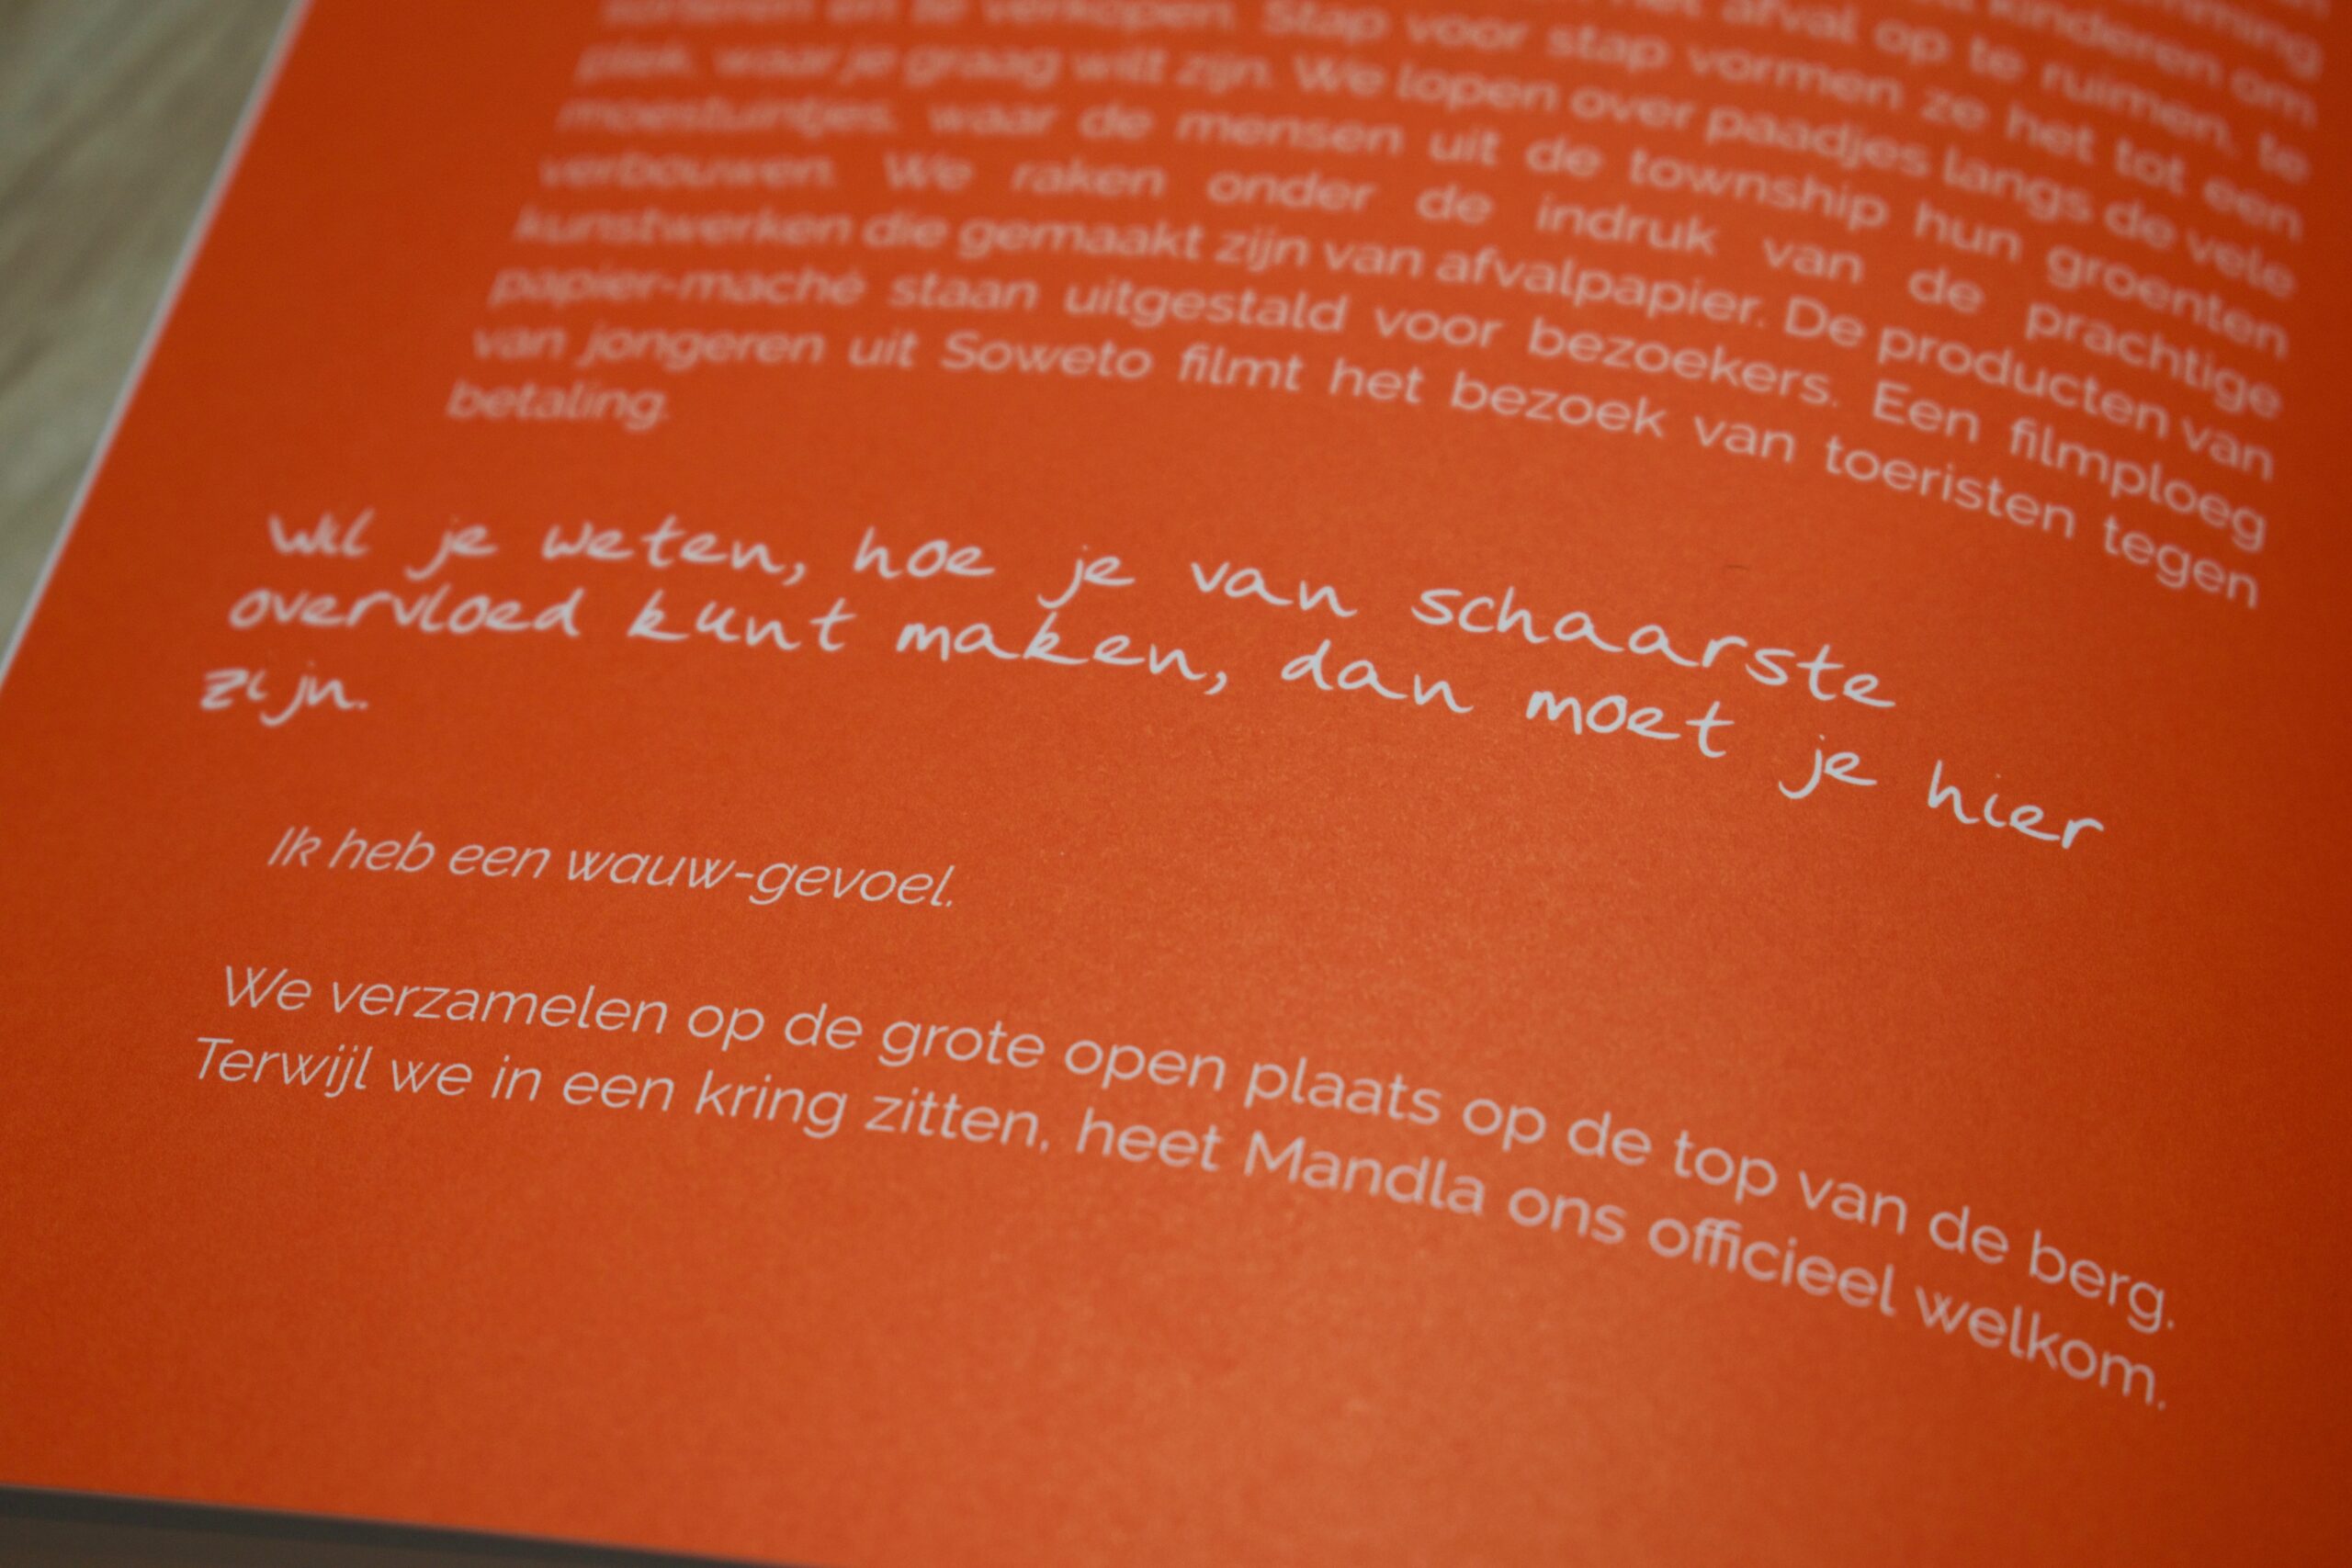 kinderen om
het afval op te ruimen, te
sorteren en te verkopen. Stap voor stap vormen ze het tot een
plek, waar je graag wilt zijn. We lopen over paadjes langs de vele
moestuintjes, waar de mensen uit de township hun groenten
verbouwen. We raken onder de indruk van de prachtige
kunstwerken die gemaakt zijn van afvalpapier. De producten van
papier-maché staan uitgestald voor bezoekers. Een filmploeg
van jongeren uit Soweto filmt het bezoek van toeristen tegen
betaling.
Wil je weten, hoe je van schaarste
overvloed kunt maken, dan moet je hier
zijn.
Ik heb een wauw-gevoel.
We verzamelen op de grote open plaats op de top van de berg.
Terwijl we in een kring zitten, heet Mandla ons officieel welkom.